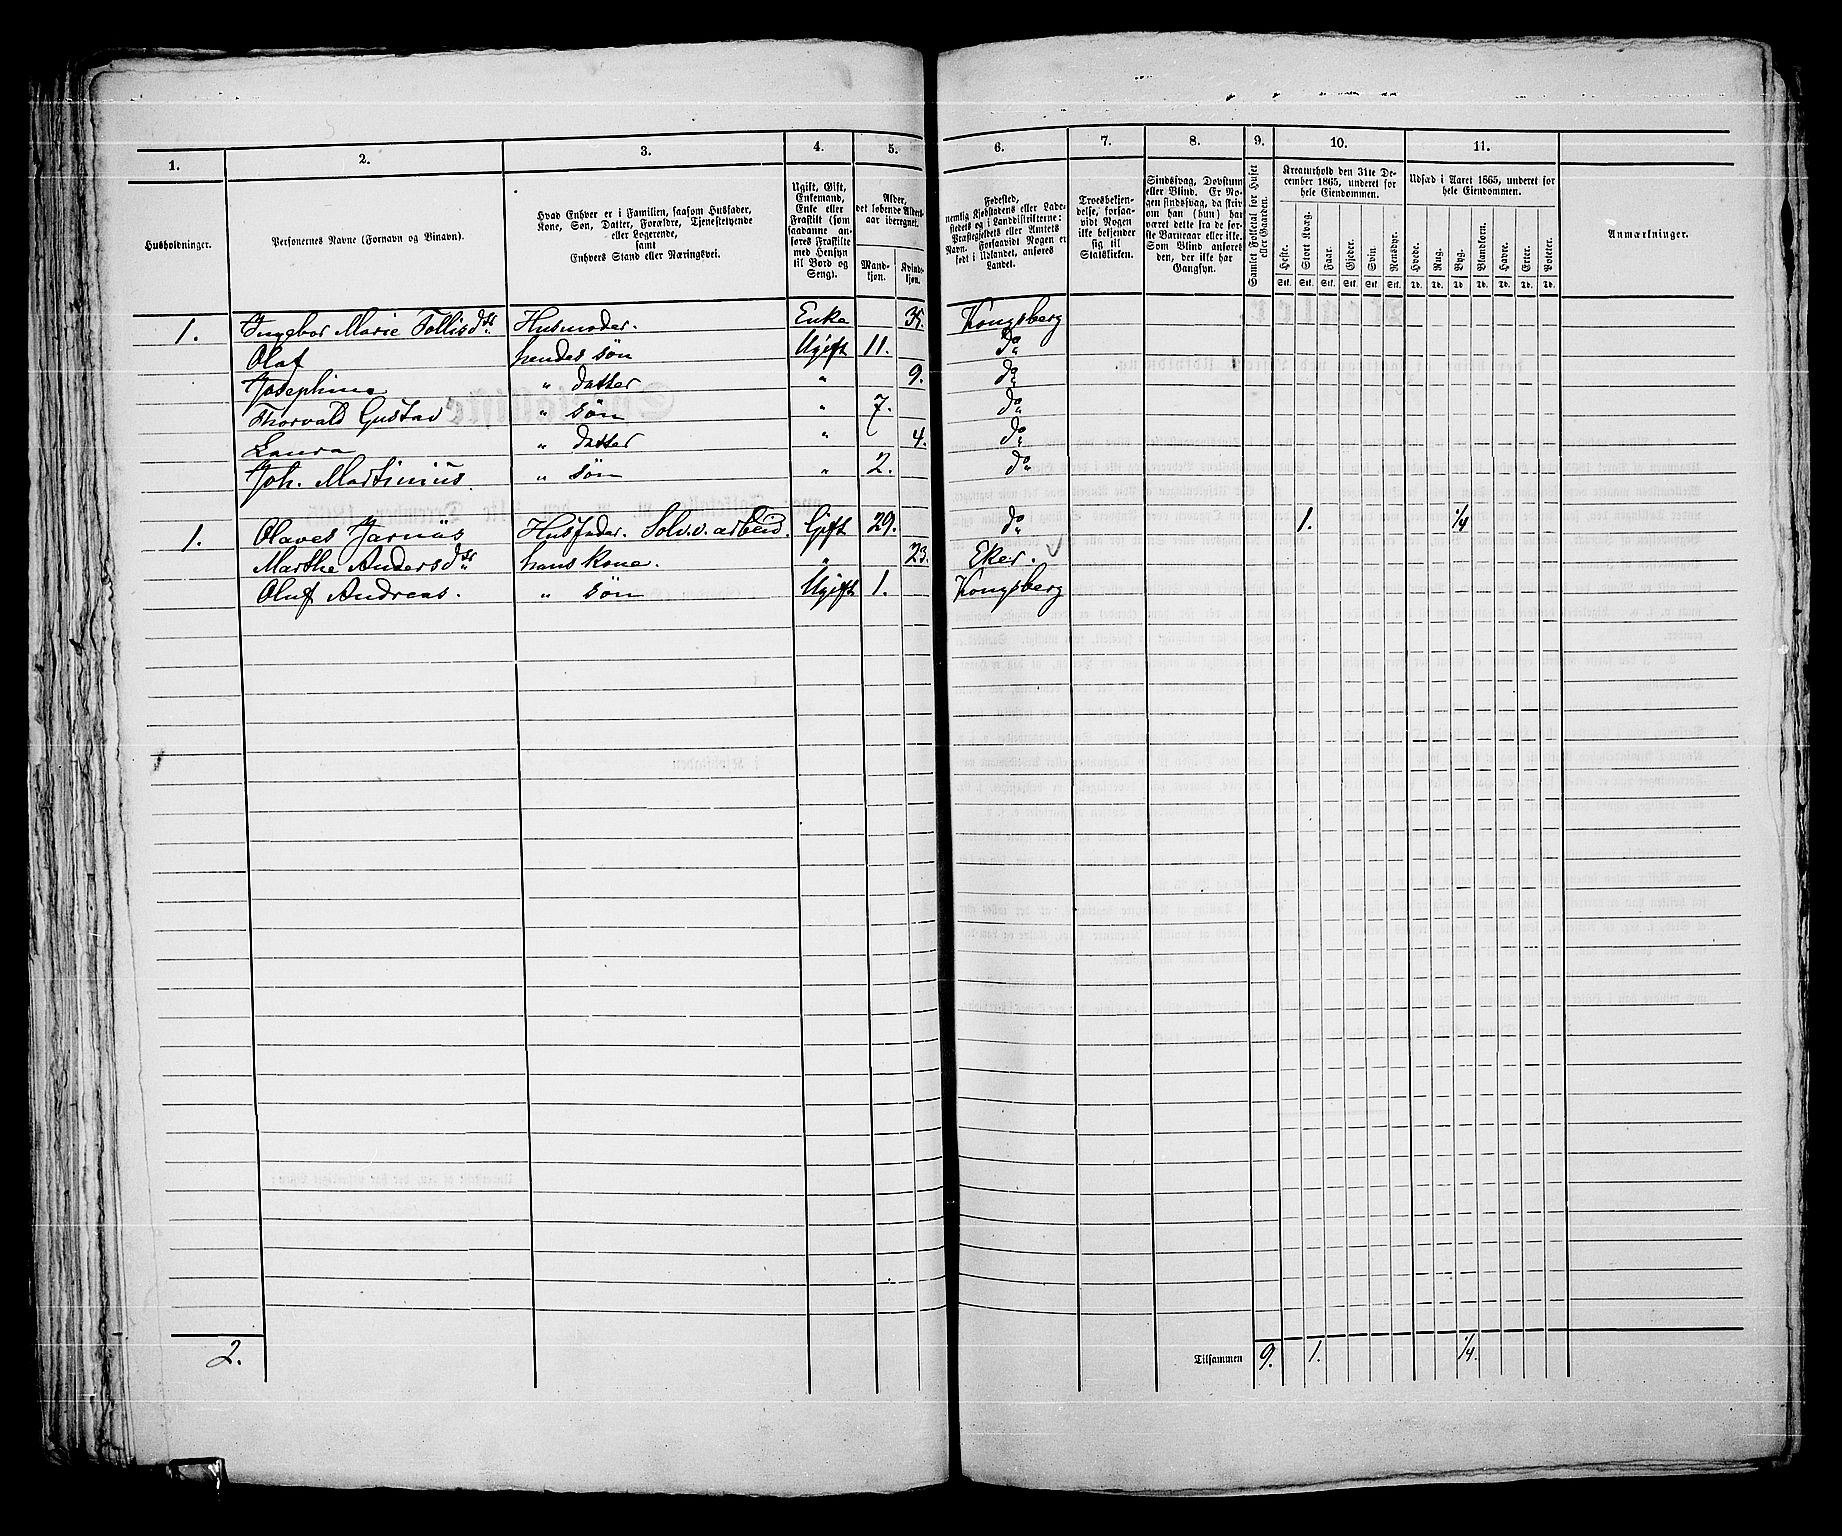 1. 2. 3. 4. 5. 6. 7. 8. 9. 10. 11.
Husholdninger.
Personernes Navne (Fornavn og Binavn).
Hvad Enhver er i Familien, saasom Husfader,
Kone, Søn, Datter, Forældre, Tjenestetyende
eller Logerende,
samt
Enhvers Stand eller Næringsvei.
Ugift, Gift,
Enkemand,
Enke eller
Fraskilt (som
saadanne an-
føres Fraskilte
med Hensyn
til Bord og
Seng).
Alder,
det løbende Alders-
aar iberegnet.
Mand-
kjøn.
Kvind-
kjøn.
Fødested,
nemlig Kjøbstadens eller Lade-
stedets og i Landdistrikterne:
Præstegjeldets eller Amtets
Navn. Forsaavidt Nogen er
født i Udlandet, anføres
Landet.
Troesbekjen-
delse, forsaa-
vidt Nogen
ikke bekjender
sig til
Statskirken.
Sindssvag, Døvstum
eller Blind. Er No-
gen sindssvag, da skriv
om han (hun) har
været dette fra de før-
ste Barneaar eller ikke.
Som Blind anføres
den, der ikke har
Gangsyn.
Samlet Folketal for Huset
eller Gaarden.
Kreaturhold den 31te De-
cember 1865, underet for
hele Eiendommen.
Heste. Stort Kvæg. Faar. Gjeder. Svin. Rensdyr.
Stk. Stk. Stk. Stk. Stk. Stk.
Udsæd i Aaret 1865, underet for
hele Eiendommen.
Hvede. Rug. Byg. Blandkorn. Havre. Erter. Poteter.
Td. Td. Td. Td. Td. Td. Td.
Anmærkninger.
1. Ingebor Marie Tollisdtr Husmoder. Enke 35. Kongsberg
Olaf hendes søn Ugift 11. do
Josephine " datter " 9. do
Thorvald Gustav " søn " 7. do
Laura " datter " 4. do
Joh. Martinius. " søn " 2. do
1. Olaves Jarnæs Husfader. Sølv.v. arbeid. Gift 29. do 1. 1/4
Marthe Andersdtr hans kone. " 23. Eker.
Oluf Andreas. " søn Ugift 1. Kongsberg
2. Tilsammen 9. 1. 1/4.